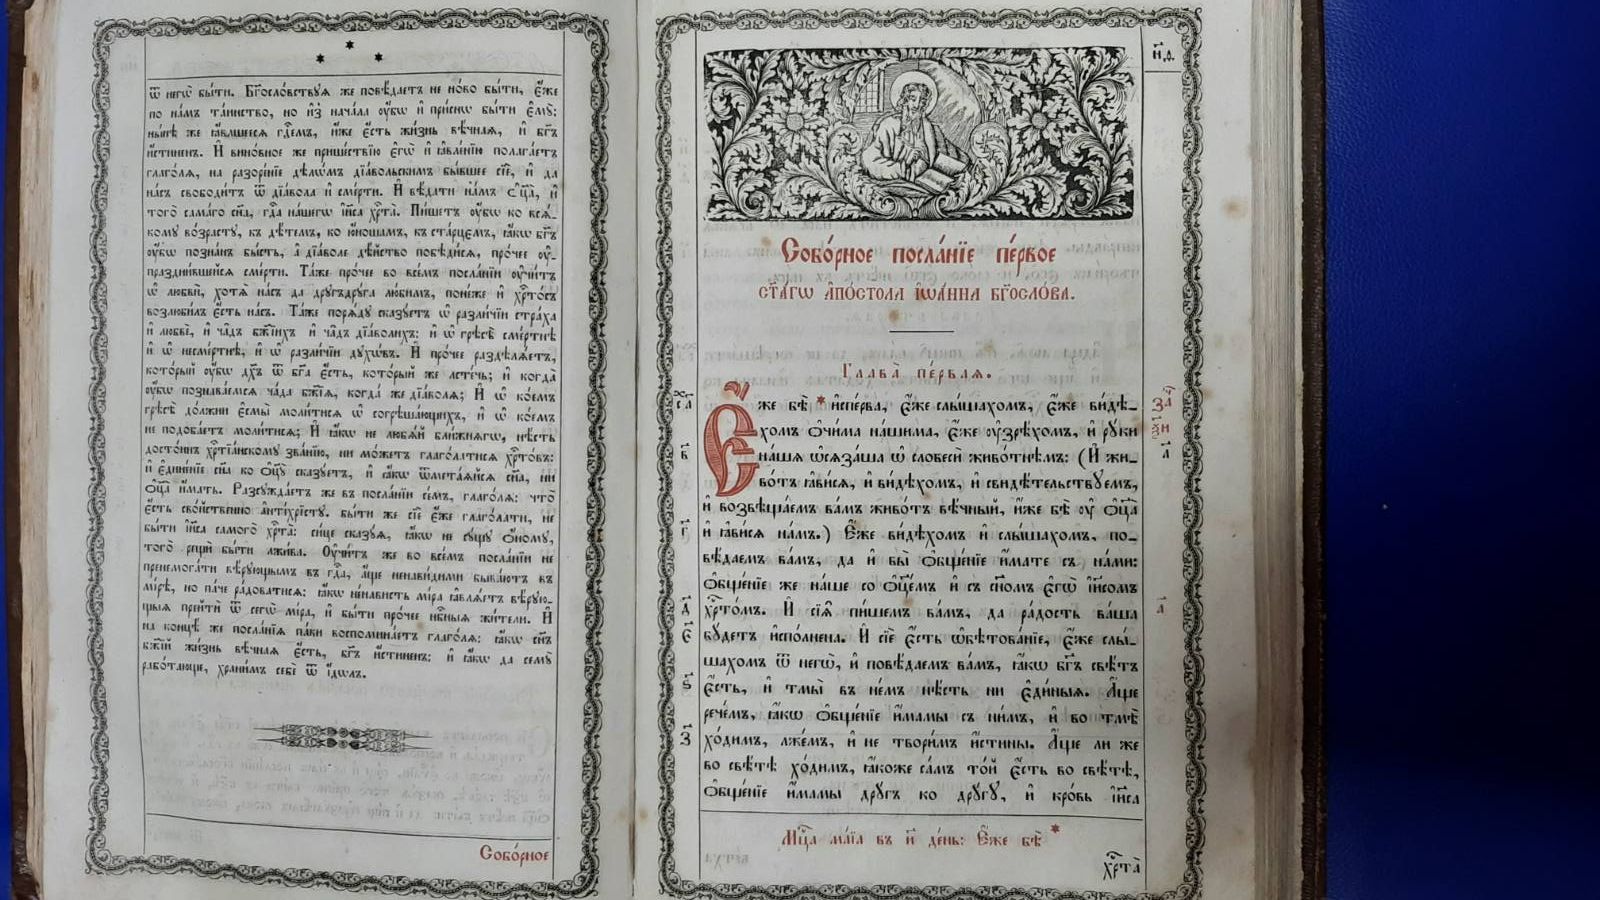 ѿ негѡ̀ бы́ти. Бг҃осло́вствꙋѧ же повѣ́даетъ не но́во бы́ти, є҆́же
по на́мъ та́инство, но и҆з̾ нача́ла ᲂу҆́бѡ и҆ при́снѡ бы́ти є҆мꙋ̀:
ны́нѣ же ꙗ҆́вльшеесѧ гдⷭ҇емъ, и҆́же є҆́сть жи́знь вѣ́чнаѧ, и҆ бг҃ъ
и҆́стиненъ. И҆ вино́вное же прише́ствїю є҆гѡ̀ и҆ ꙗ҆вле́нїю полага́етъ
глаго́лѧ, на разоре́нїе дѣлѡ́мъ дїа́вольскимъ бы́вшее сїѐ, и҆ да
на́съ свободи́тъ ѿ дїа́вола и҆ сме́рти. И҆ вѣ́дати на́мъ ѻ҆ц҃а̀, и҆
того̀ самаго сн҃а, гдⷭ҇а на́шегѡ і҆и҃са хрⷭ҇та̀. Пи́шетъ ᲂу҆́бѡ ко всѧ́-
комꙋ во́зрастꙋ, къ дѣ́темъ, ко ю҆́ношамъ, къ ста́рцемъ, ꙗ҆́кѡ бг҃ъ
ᲂу҆́бѡ позна́нъ бы́сть, а҆ дїа́воле дѣ́йство побѣди́сѧ, про́чее ᲂу҆-
праздни́вшейсѧ сме́рти. Та́же про́чее во все́мъ посла́нїи ᲂу҆чи́тъ
ѡ҆ любвѝ, хотѧ̀ на́съ да дрꙋгъдрꙋга лю́бимъ, поне́же и҆ хрⷭ҇то́съ
возлюби́лъ є҆́сть на́съ. Та́же порѧ́дꙋ сказꙋетъ ѡ҆ разли́чїи стра́ха
и҆ любвѐ, и҆ ча́дъ бж҃їихъ и҆ ча́дъ дїа́волихъ: и҆ ѡ҆ грѣсѣ̀ сме́ртнѣ
и҆ ѡ҆ несме́ртнѣ, и҆ ѡ҆ разли́чїи дꙋ́хѡвъ. И҆ про́чее раздѣлѧ́етъ,
кото́рый ᲂу҆́бѡ дх҃ъ ѿ бг҃а є҆́сть, кото́рый же ле́стечь; и҆ когда̀
ᲂу҆́бѡ познава́емсѧ ча́да бж҃їѧ, когда́ же дїа́волѧ; И҆ ѡ҆ ко́емъ
грѣсѣ̀ до́лжни є҆смы̀ моли́тисѧ ѡ҆ согрѣша́ющихъ, и҆ ѡ҆ ко́емъ
не подоба́етъ моли́тисѧ; И҆ ꙗ҆́кѡ не любѧ́й бли́жнѧго, нѣ́сть
досто́инъ хрⷭ҇тїа́нскомꙋ зва́нїю, ни мо́жетъ глаго́латисѧ хрⷭ҇то́въ:
и҆ є҆дине́нїе сн҃а ко ѻ҆ц҃ꙋ̀ сказꙋетъ, и҆ ꙗ҆́кѡ ѿмета́ѧйсѧ сн҃а, ни
ѻ҆ц҃а̀ и҆́мать. Разсꙋжда́етъ же въ посла́нїи се́мъ, глаго́лѧ: что̀
є҆́сть сво́йственно а҆нті́хрїстꙋ. бы́ти же сїѐ є҆́же глаго́лати, не
бы́ти і҆и҃са самого̀ хрⷭ҇та̀: си́це сказꙋѧ, ꙗ҆́кѡ не сꙋ́щꙋ ѻ҆́номꙋ,
того̀ рещѝ бы́ти лжи́ва. Оу҆чи́тъ же во все́мъ посла́нїи не
пренемога́ти вѣ́рꙋющымъ въ гдⷭ҇а, а҆́ще ненави́димы быва́ютъ въ
мі́рѣ, но па́че ра́доватисѧ: ꙗ҆́кѡ не́нависть мі́ра ꙗ҆влѧ́етъ вѣ́рꙋю-
щыѧ прейтѝ ѿ сегѡ̀ мі́ра, и҆ бы́ти про́чее нб҃ныѧ жи́тели. И҆
на конце́ же посла́нїѧ па́ки воспомина́етъ глаго́лѧ: ꙗ҆́кѡ сн҃ъ
бж҃їй жи́знь вѣ́чнаѧ є҆́сть, бг҃ъ и҆́стиненъ: и҆ ꙗ҆́кѡ да семꙋ̀
рабо́тающе, храни́мъ себѐ ѿ і҆́дѡлъ.
Собо́рное
н҃д.
Собо́рное посла́нїе пе́рвое
ст҃а́гѡ а҆по́стола і҆ѡа́нна бг҃осло́ва.
Глава̀ пе́рваѧ.
Є҆́же бѣ̀ * и҆спе́рва, є҆́же слы́шахомъ, є҆́же ви́дѣ-
хомъ ѻ҆чи́ма на́шима, є҆́же ᲂу҆зрѣ́хомъ, и҆ рꙋ́ки
на́шѧ ѡ҆сѧза́ша ѡ҆ словесѝ живо́тнѣмъ: (И҆ жи-
во́тъ ꙗ҆ви́сѧ, и҆ ви́дѣхомъ, и҆ свидѣ́тельствꙋемъ,
и҆ возвѣща́емъ ва́мъ живо́тъ вѣ́чный, и҆́же бѣ̀ ᲂу҆ ѻ҆ц҃а̀
и҆ ꙗ҆ви́сѧ на́мъ.) Є҆́же ви́дѣхомъ и҆ слы́шахомъ, по-
вѣ́даемъ ва́мъ, да и҆ вы̀ ѻ҆бще́нїе и҆́мате съ на́ми:
ѻ҆бще́нїе же на́ше со ѻ҆ц҃е́мъ и҆ съ сн҃омъ є҆гѡ̀ і҆и҃сомъ
хрⷭ҇то́мъ. И҆ сїѧ̑ пи́шемъ ва́мъ, да ра́дость ва́ша
бꙋ́детъ и҆спо́лнена. И҆ сїѐ є҆́сть ѡ҆бѣтова́нїе, є҆́же слы́-
шахомъ ѿ негѡ̀, и҆ повѣ́даемъ ва́мъ, ꙗ҆́кѡ бг҃ъ свѣ́тъ
є҆́сть, и҆ тмы̀ въ не́мъ нѣ́сть ни є҆ди́ныѧ. А҆́ще
рече́мъ, ꙗ҆́кѡ ѻ҆бще́нїе и҆́мамы съ ни́мъ, и҆ во тмѣ̀
хо́димъ, лже́мъ, и҆ не твори́мъ и҆́стины. А҆́ще ли же
во свѣ́тѣ хо́димъ, ꙗ҆́коже са́мъ то́й є҆́сть во свѣ́тѣ,
ѻ҆бще́нїе и҆́мамы дрꙋ́гъ ко дрꙋ́гꙋ, и҆ кро́вь і҆и҃са
Мцⷭ҇а ма́їа въ и҃ де́нь: Є҆́же бѣ̀ *
хрⷭ҇та̀